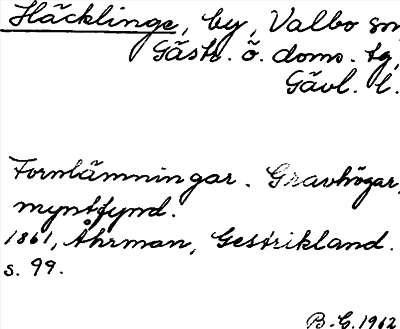 Häcklinge, by, Valbo sn
Gästr. ö. doms. tg,
Gävl. l.
Fornlämningar. Gravhögar,
myntfynd.
1861, Åhrman, Gestrikland.
s. 99.
B.E. 1962